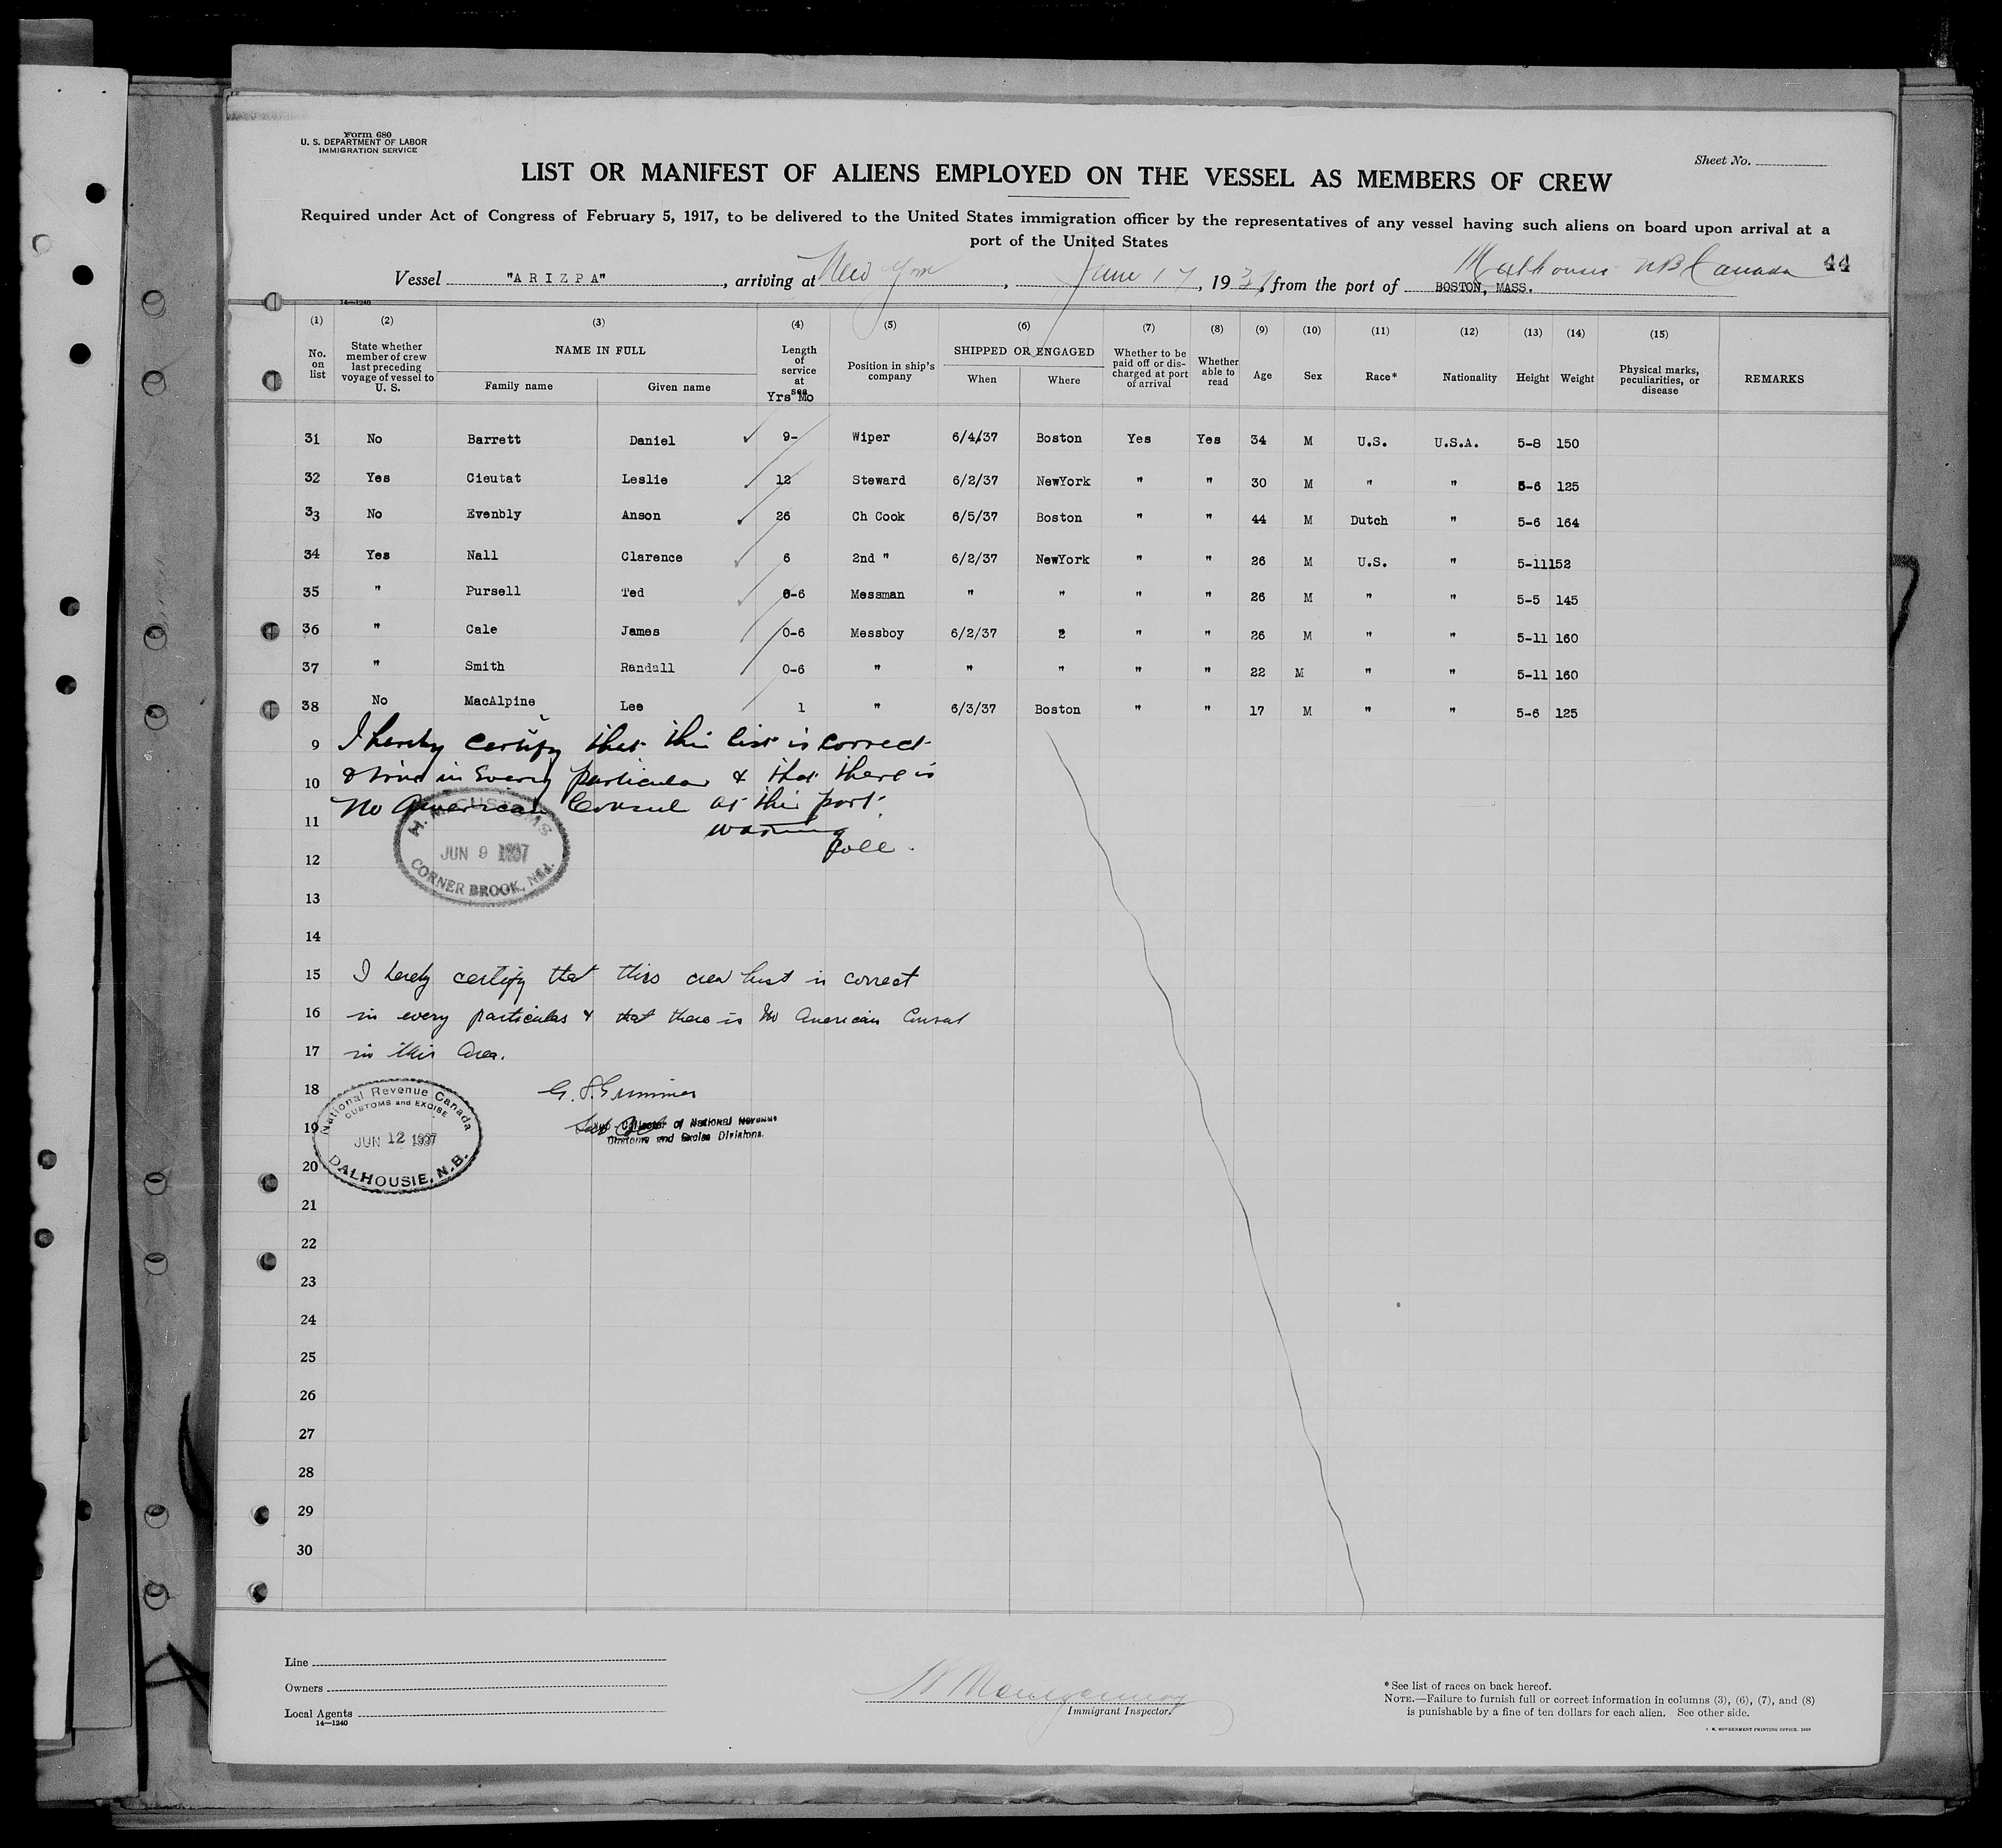 Form 680
U. S. DEPARTMENT OF LABOR
IMMIGRATION SERVICE
Sheet No.
LIST OR MANIFEST OF ALIENS EMPLOYED ON THE VESSEL AS MEMBERS OF CREW
Required under Act of Congress of February 5, 1917, to be delivered to the United States immigration officer by the representatives of any vessel having such aliens on board upon arrival at a
port of the United States
Vessel "ARIZPA", arriving at New York, June 17, 1937, from the port of BOSTON, MASS. N B Canada 44
14—1240
(1) (2) (3) (4) (5) (6) (7) (8) (9) (10) (11) (12) (13) (14) (15)
No. on list
State whether member of crew last preceding voyage of vessel to U. S.
NAME IN FULL
Family name Given name
Length of service at sea
Yrs Mo
Position in ship's company
SHIPPED OR ENGAGED
When Where
Whether to be paid off or discharged at port of arrival
Whether able to read
Age Sex Race* Nationality Height Weight
Physical marks, peculiarities, or disease
REMARKS
31 No Barrett Daniel ✓ 9- Wiper 6/4/37 Boston Yes Yes 34 M U.S. U.S.A. 5-8 150
32 Yes Cieutat Leslie ✓ 12 Steward 6/2/37 NewYork " " 30 M " " 5-6 125
33 No Evenbly Anson ✓ 26 Ch Cook 6/5/37 Boston " " 44 M Dutch " 5-6 164
34 Yes Nall Clarence ✓ 6 2nd " 6/2/37 NewYork " " 26 M U.S. " 5-11 152
35 " Pursell Ted ✓ 0-6 Messman " " " " 26 M " " 5-5 145
36 " Cale James ✓ 0-6 Messboy 6/2/37 2 " " 26 M " " 5-11 160
37 " Smith Randall ✓ 0-6 " " " " " 22 M " " 5-11 160
38 No MacAlpine Lee 1 " 6/3/37 Boston " " 17 M " " 5-6 125
9 I hereby certify that this list is correct
10 & true in every particular & that there is
No American Consul at this port.
11
H. M. CUSTOMS
JUN 9 1937
CORNER BROOK, Nfd.
12
13
14
15 I hereby certify that this crew list is correct
16 in every particular & that there is no American Consul
17 in this Area.
18
National Revenue Canada
CUSTOMS and EXCISE
JUN 12 1937
DALHOUSIE, N.B.
19
Sub-Collector of National Revenue
Customs and Excise Divisions.
20
21
22
23
24
25
26
27
28
29
30
Line
Owners
Local Agents
14—1240
Montgomery
Immigrant Inspector.
* See list of races on back hereof.
NOTE.—Failure to furnish full or correct information in columns (3), (6), (7), and (8)
is punishable by a fine of ten dollars for each alien. See other side.